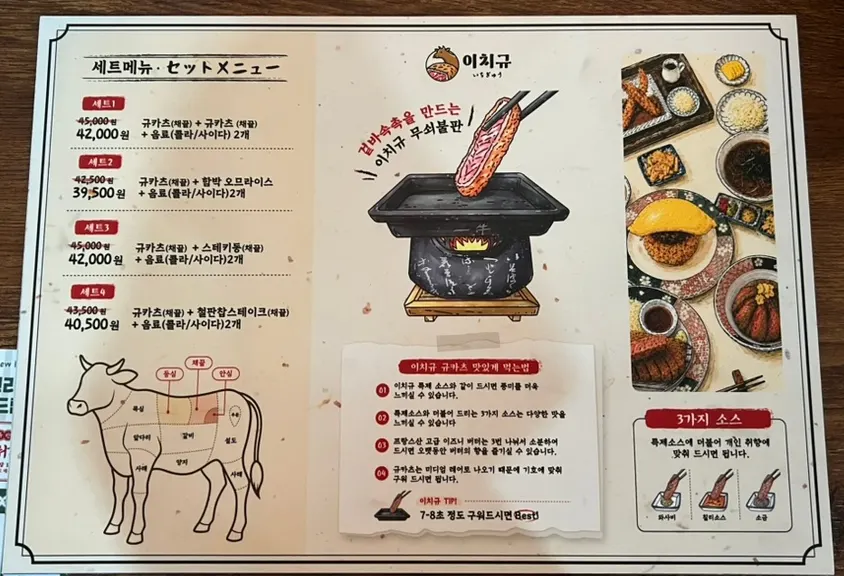 세트메뉴 · セットメニュー
세트1
45,000원
42,000원
규카츠(채끝) + 규카츠(채끝)
+ 음료(콜라/사이다) 2개
세트2
42,500원
39,500원
규카츠(채끝) + 함박 오므라이스
+ 음료(콜라/사이다)2개
세트3
45,000원
42,000원
규카츠(채끝) + 스테키동(채끝)
+ 음료(콜라/사이다)2개
세트4
43,500원
40,500원
규카츠(채끝) + 철판찹스테이크(채끝)
+ 음료(콜라/사이다)2개
등심
채끝
안심
목심
앞다리
갈비
우둔
설도
양지
사태
사태
이치규
いちぎゅう
겉바속촉을 만드는
이치규 무쇠불판
이치규 규카츠 맛있게 먹는법
01 이치규 특제 소스와 같이 드시면 풍미를 더욱
느끼실 수 있습니다.
02 특제소스와 더불어 드리는 3가지 소스는 다양한 맛을
느끼실 수 있습니다
03 프랑스산 고급 이즈니 버터는 3번 나눠서 소분하여
드시면 오랫동안 버터의 향을 즐기실 수 있습니다.
04 규카츠는 미디엄 레어로 나오기 때문에 기호에 맞춰
구워 드시면 됩니다.
이치규 TIP!
7-8초 정도 구워드시면 Best!
3가지 소스
특제소스에 더불어 개인 취향에
맞춰 드시면 됩니다.
와사비
칠리소스
소금